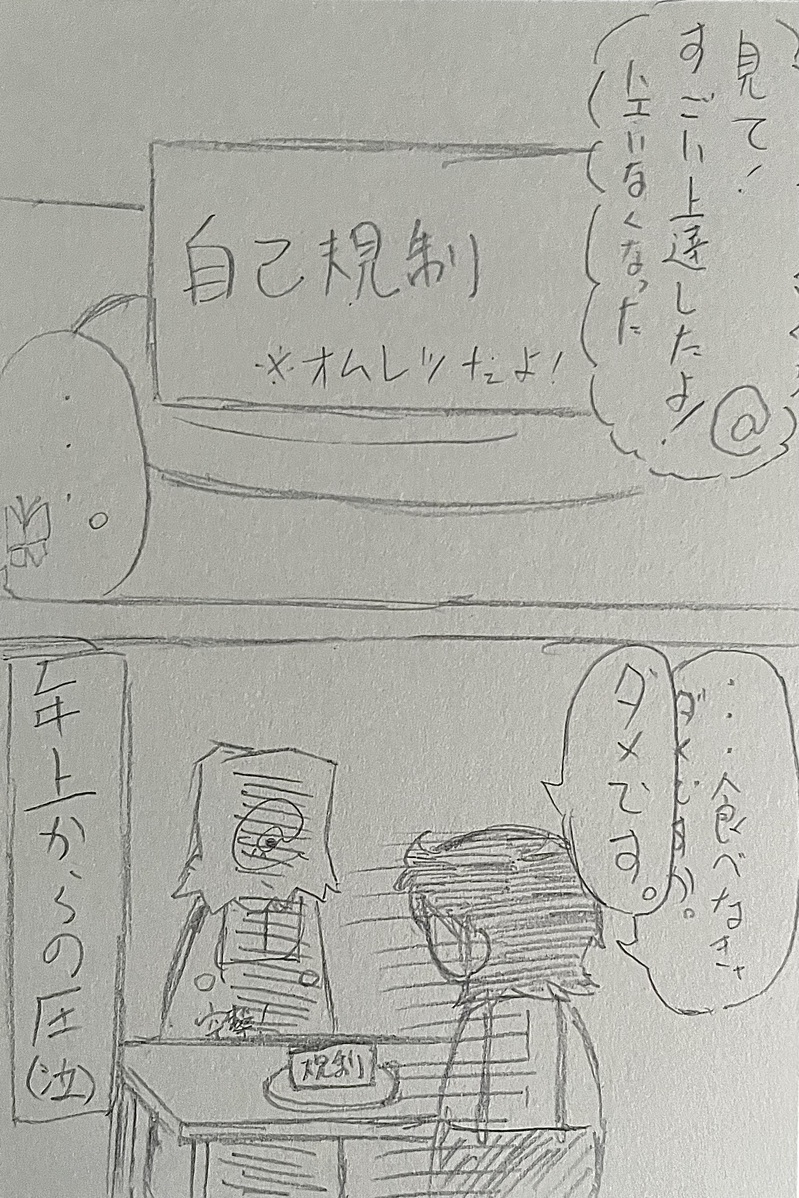 見て!
すごい上達したよ!
ハエいなくなった
自己規制
※オムレツだよ!
・・・食べなきゃ
ダメですか。
ダメです。
年上からの圧(泣)
突撃!
規制